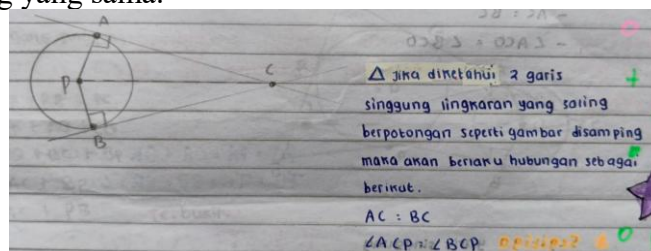 g yang sama.
A
P
C
B
△ Jika diketahui 2 garis
singgung lingkaran yang saling
berpotongan seperti gambar disamping
maka akan berlaku hubungan sebagai
berikut.
AC = BC
∠ACP = ∠BCP